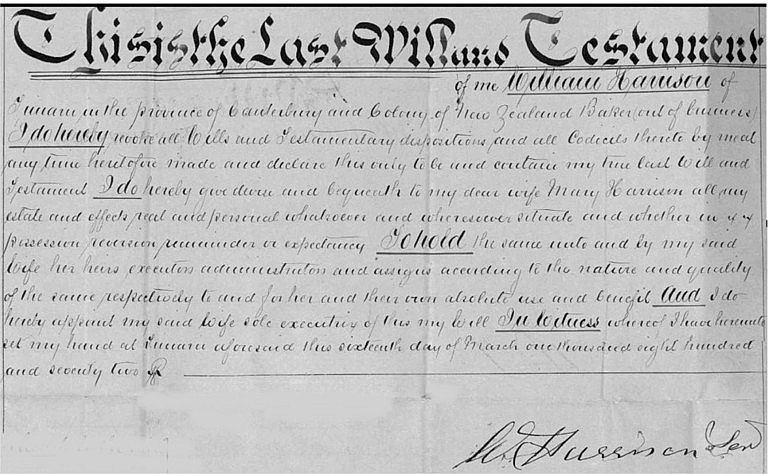 This is the Last Will and Testament
of me William Harrison of
Timaru in the province of Canterbury and Colony of New Zealand Baker (out of business)
I do hereby revoke all Wills and Testamentary dispositions and all Codicils thereto by me at
any time heretofore made and declare this only to be and contain my true last Will and
Testament I do hereby give devise and bequeath to my dear wife Mary Harrison all my
estate and effects real and personal whatsoever and wheresoever situate and whether in
possession reversion remainder or expectancy To hold the same unto and by my said
Wife her heirs executors administrators and assigns according to the nature and quality
of the same respectively to and for her and their own absolute use and benefit And I do
hereby appoint my said Wife sole executrix of this my Will In Witness whereof I have hereunto
set my hand at Timaru aforesaid this sixteenth day of March one thousand eight hundred
and seventy two
Wm Harrison Senr